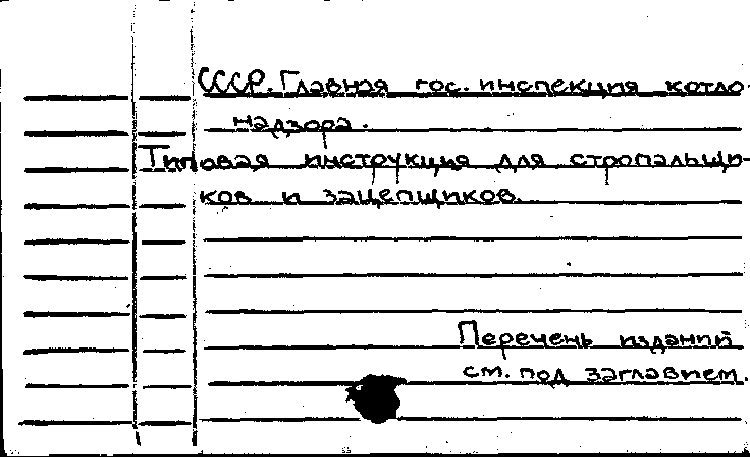 СССР. Главная гос. инспекция котло-
надзора.
Типовая инструкция для стропальщи-
ков и зацепщиков.
Перечень изданий
см. под заглавием.